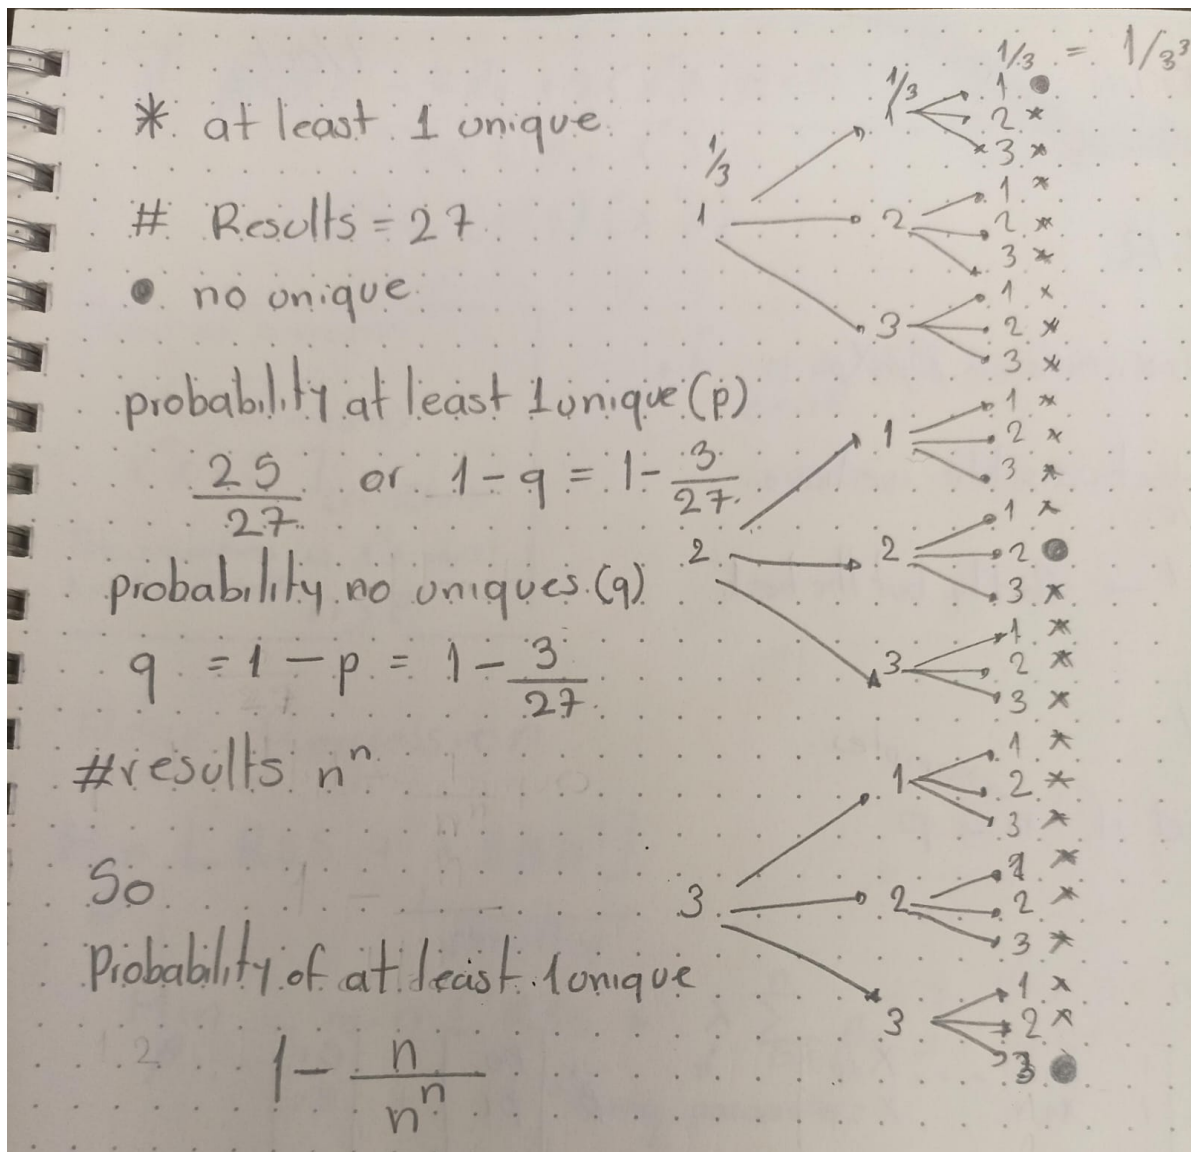 * at least 1 unique
# Results = 27
● no unique
probability at least 1 unique (p)
25/27 or 1 - q = 1 - 3/27
probability no uniques (q)
q = 1 - p = 1 - 3/27
#results n^n
So
Probability of at least 1 unique
1 - n/n^n
1/3 = 1/3^3
1/3
1/3
1
1
1 ●
2 *
3 *
2
1 *
2 *
3 *
3
1 *
2 *
3 *
2
1
1 *
2 *
3 *
2
1 *
2 ●
3 *
3
1 *
2 *
3 *
3
1
1 *
2 *
3 *
2
1 *
2 *
3 *
3
1 *
2 *
3 ●